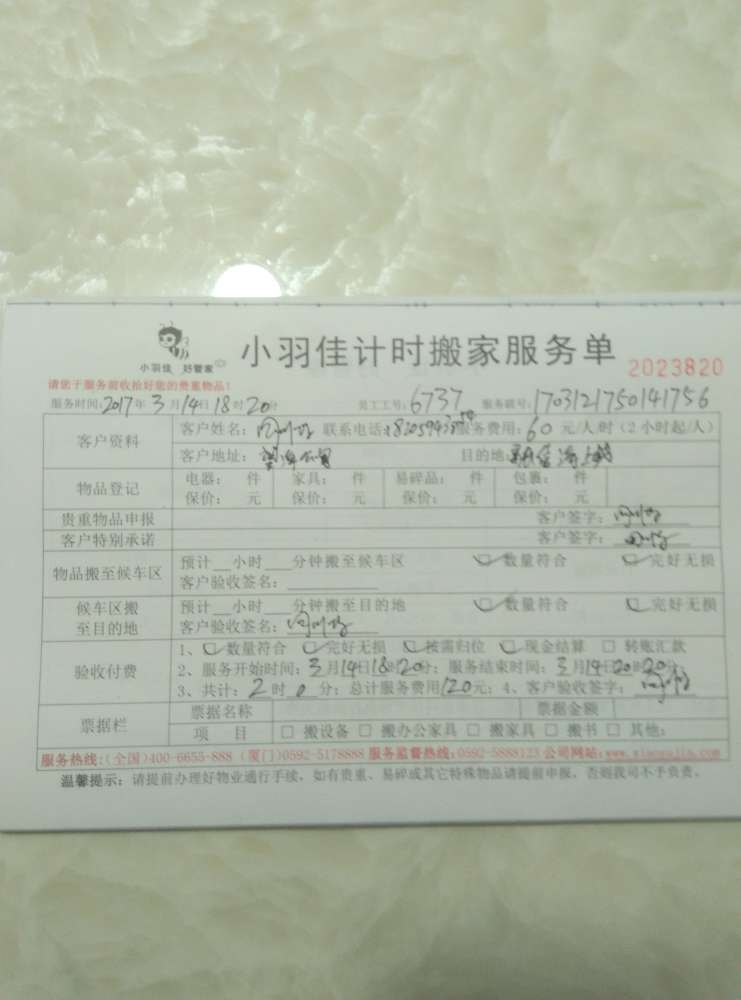 小羽佳 好管家
小羽佳计时搬家服务单 2023820
请您于服务前收拾好您的贵重物品!
服务时间:2017年3月14日18时20分 员工工号:6737 服务码号:1703121750141756
客户资料 客户姓名: 联系电话: 服务费用:60元/人/时(2小时起/人)
客户地址: 目的地:
物品登记 电器: 件 家具: 件 易碎品: 件 包裹: 件
保价: 元 保价: 元 保价: 元 保价: 元
贵重物品申报 客户签字:
客户特别承诺 客户签字:
物品搬至候车区 预计__小时___分钟搬至候车区 数量符合 完好无损
客户验收签名:
候车区搬至目的地 预计__小时___分钟搬至目的地 数量符合 完好无损
客户验收签名:
验收付费 1、数量符合 完好无损 被需归位 现金结算 □ 转账汇款
2、服务开始时间:3月14日18时20分;服务结束时间:3月14日20时20分;
3、共计:2时0分;总计服务费用120元;4、客户验收签字:
票据栏 票据名称 票据金额
项 目 □ 搬设备 □ 搬办公家具 □ 搬家具 □ 搬书 □ 其他:
服务热线:(全国)400-6655-888 (厦门)0592-5178888 服务监督热线:0592-5888123 公司网站:www.xiaoyujia.com
温馨提示:请提前办理好物业通行手续,如有贵重、易碎或其它特殊物品请提前申报,否则我司不予负责。